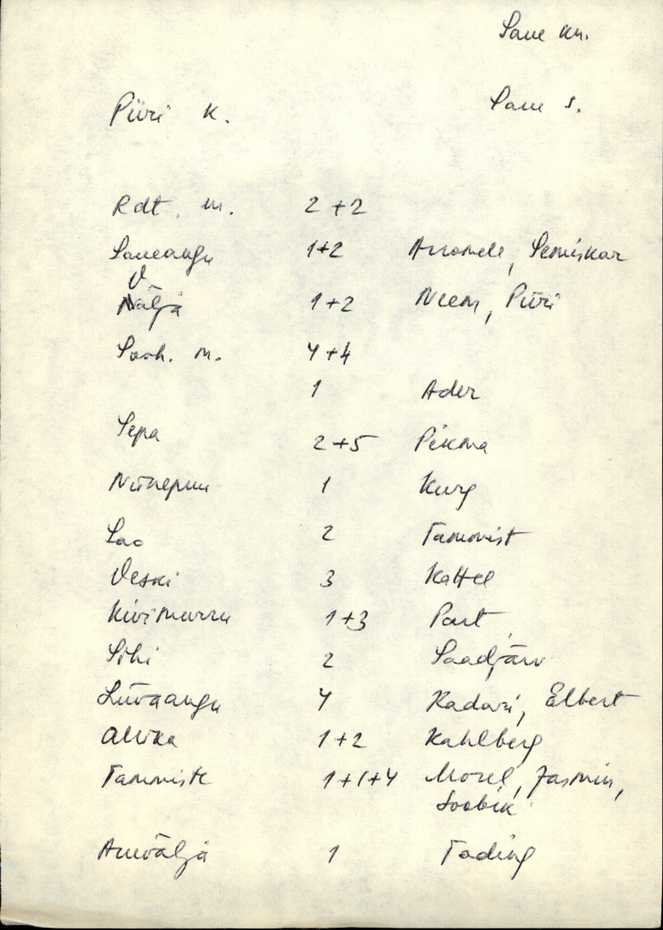 Saue kn.
Piiri k. Saue s.
Rdt. m. 2+2
Saueaugu 1+2 Arromele, Semiskar
Välja 1+2 Neem, Piiri
Sooh. m. 4+4
1 Ader
Sepa 2+5 Pikma
Niinepuu 1 Kurg
Lao 2 Tammist
Veski 3 Kattel
Kivimurru 1+3 Part
Sihi 2 Saadjärv
Liivaaugu 4 Kadari, Elbert
Allika 1+2 Kahlberg
Tammiste 1+1+4 Morel, Jasmin,
Soobik
Aruvälja 1 Tading